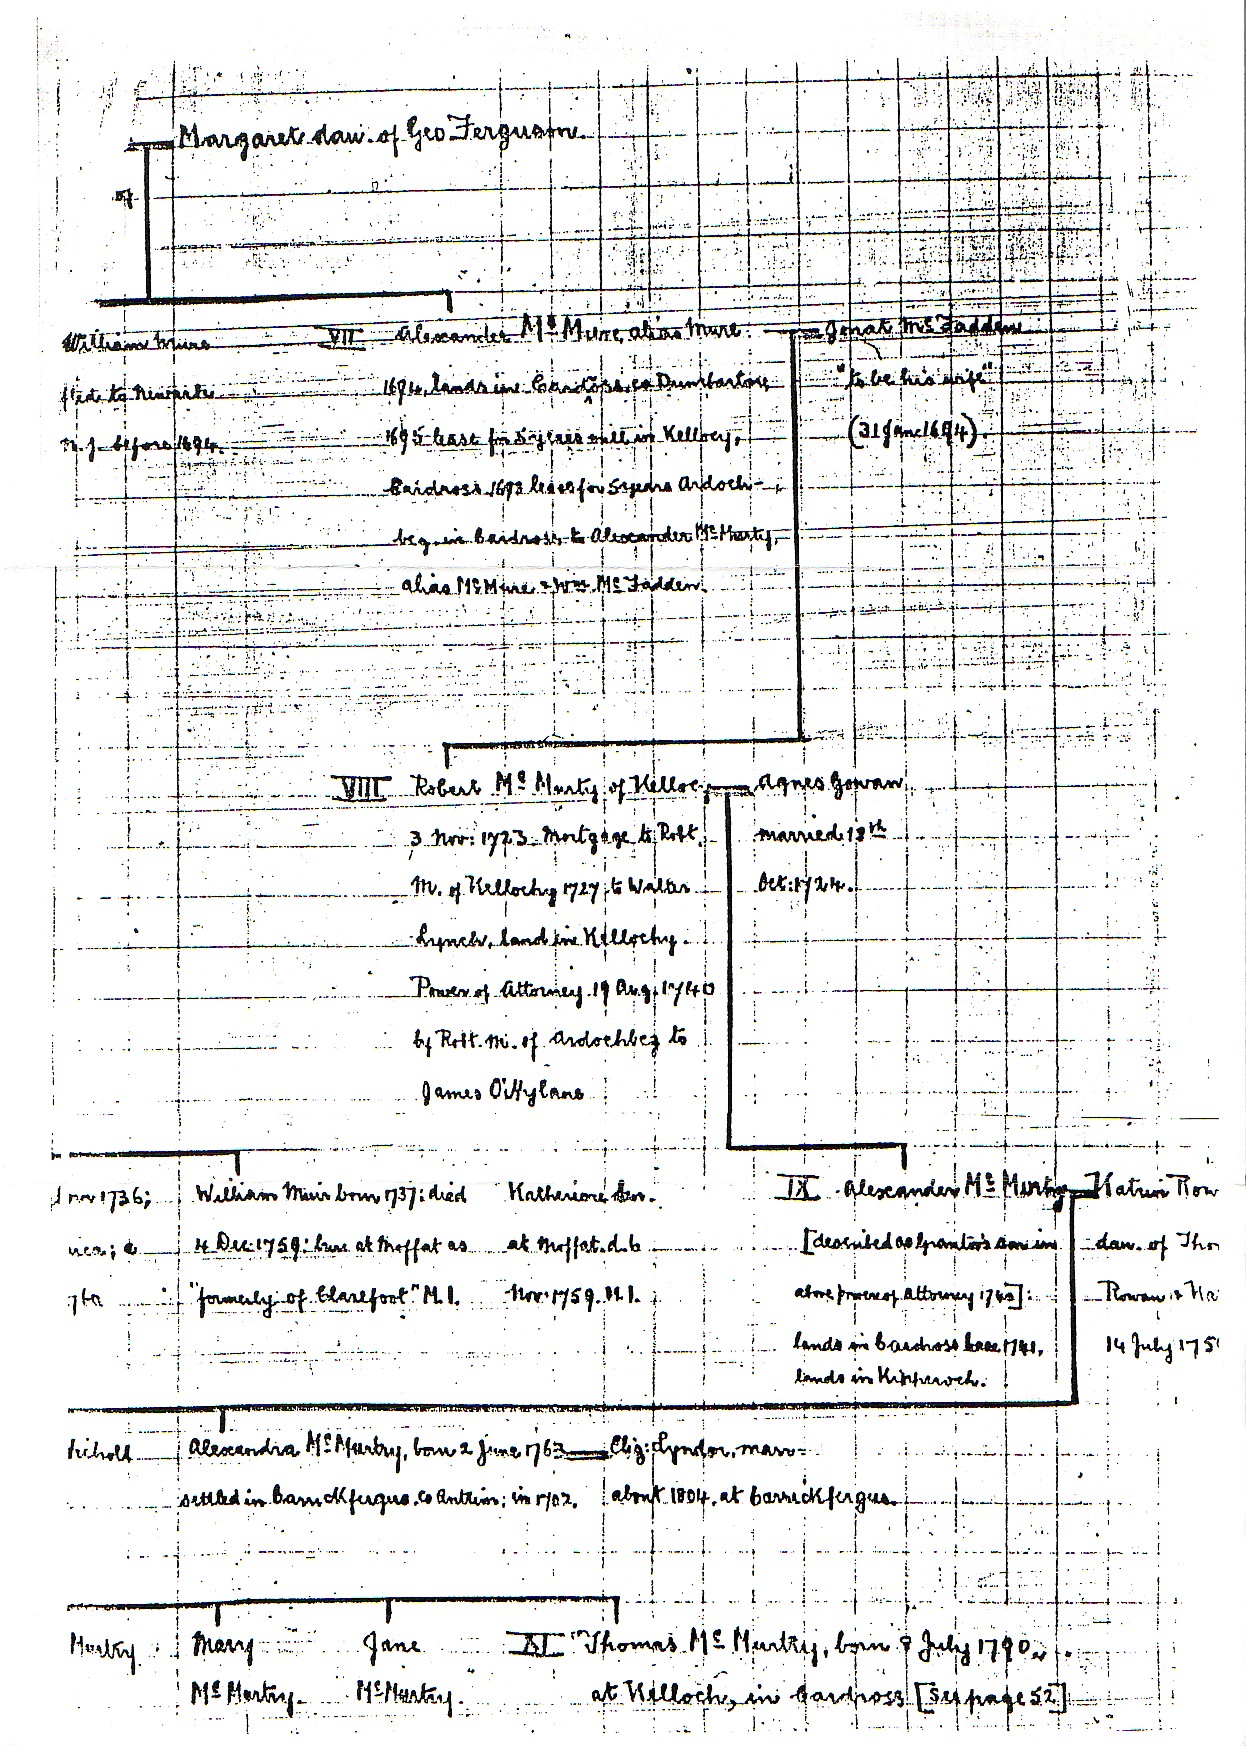 Margaret dau. of Geo Ferguson.
William Mure VII Alexander Mc Mure, alias Mure. Jonat Mc Fadden
fled to Newarke 1694, lands in Cardross, co Dumbartone "to be his wife"
N. J. before 1694. 1695 lease for 5 years mill in Kellocy, (31 Jan: 1694).
Cardross 1693 lease for 5 years Ardoch-
beg in Cardross to Alexander Mc Murty,
alias Mc Mure & Wm Mc Fadden.
VIII Robert Mc Murty of Kelloc Agnes Gowan
3 Nov: 1723. Mortgage to Robt. married 18th
M. of Kellochy 1727, to Walter Oct: 1724.
Lynch, land in Killochy.
Power of Attorney 19 Aug. 1740
by Robt. M. of Ardochbeg to
James
nov 1736; William Muir born 1737: died Katherine IX Alexander Mc Murtry Katrin Row
4 Dec: 1759: bur: at Moffat as at Moffat. d. 6 [described as Grantor's son in dau. of Tho
"formerly of Clarefoot" M.I. Nov: 1759. M.I. above power of Attorney 1740]: Rowan &
lands in Cardross 1741, 14 July 175
lands in Kipperoch.
Alexandra Mc Murtry, born 2 June 176 Eliz: Lyndon, marr=
settled in Carrickfergus. Co Antrim; in about 1804, at Carrickfergus.
Murtry. Mary Jane XI Thomas Mc Murtry, born 8 July 1790.
Mc Murtry. Mc Murtry. at Killoch, in Cardross [See page 52]